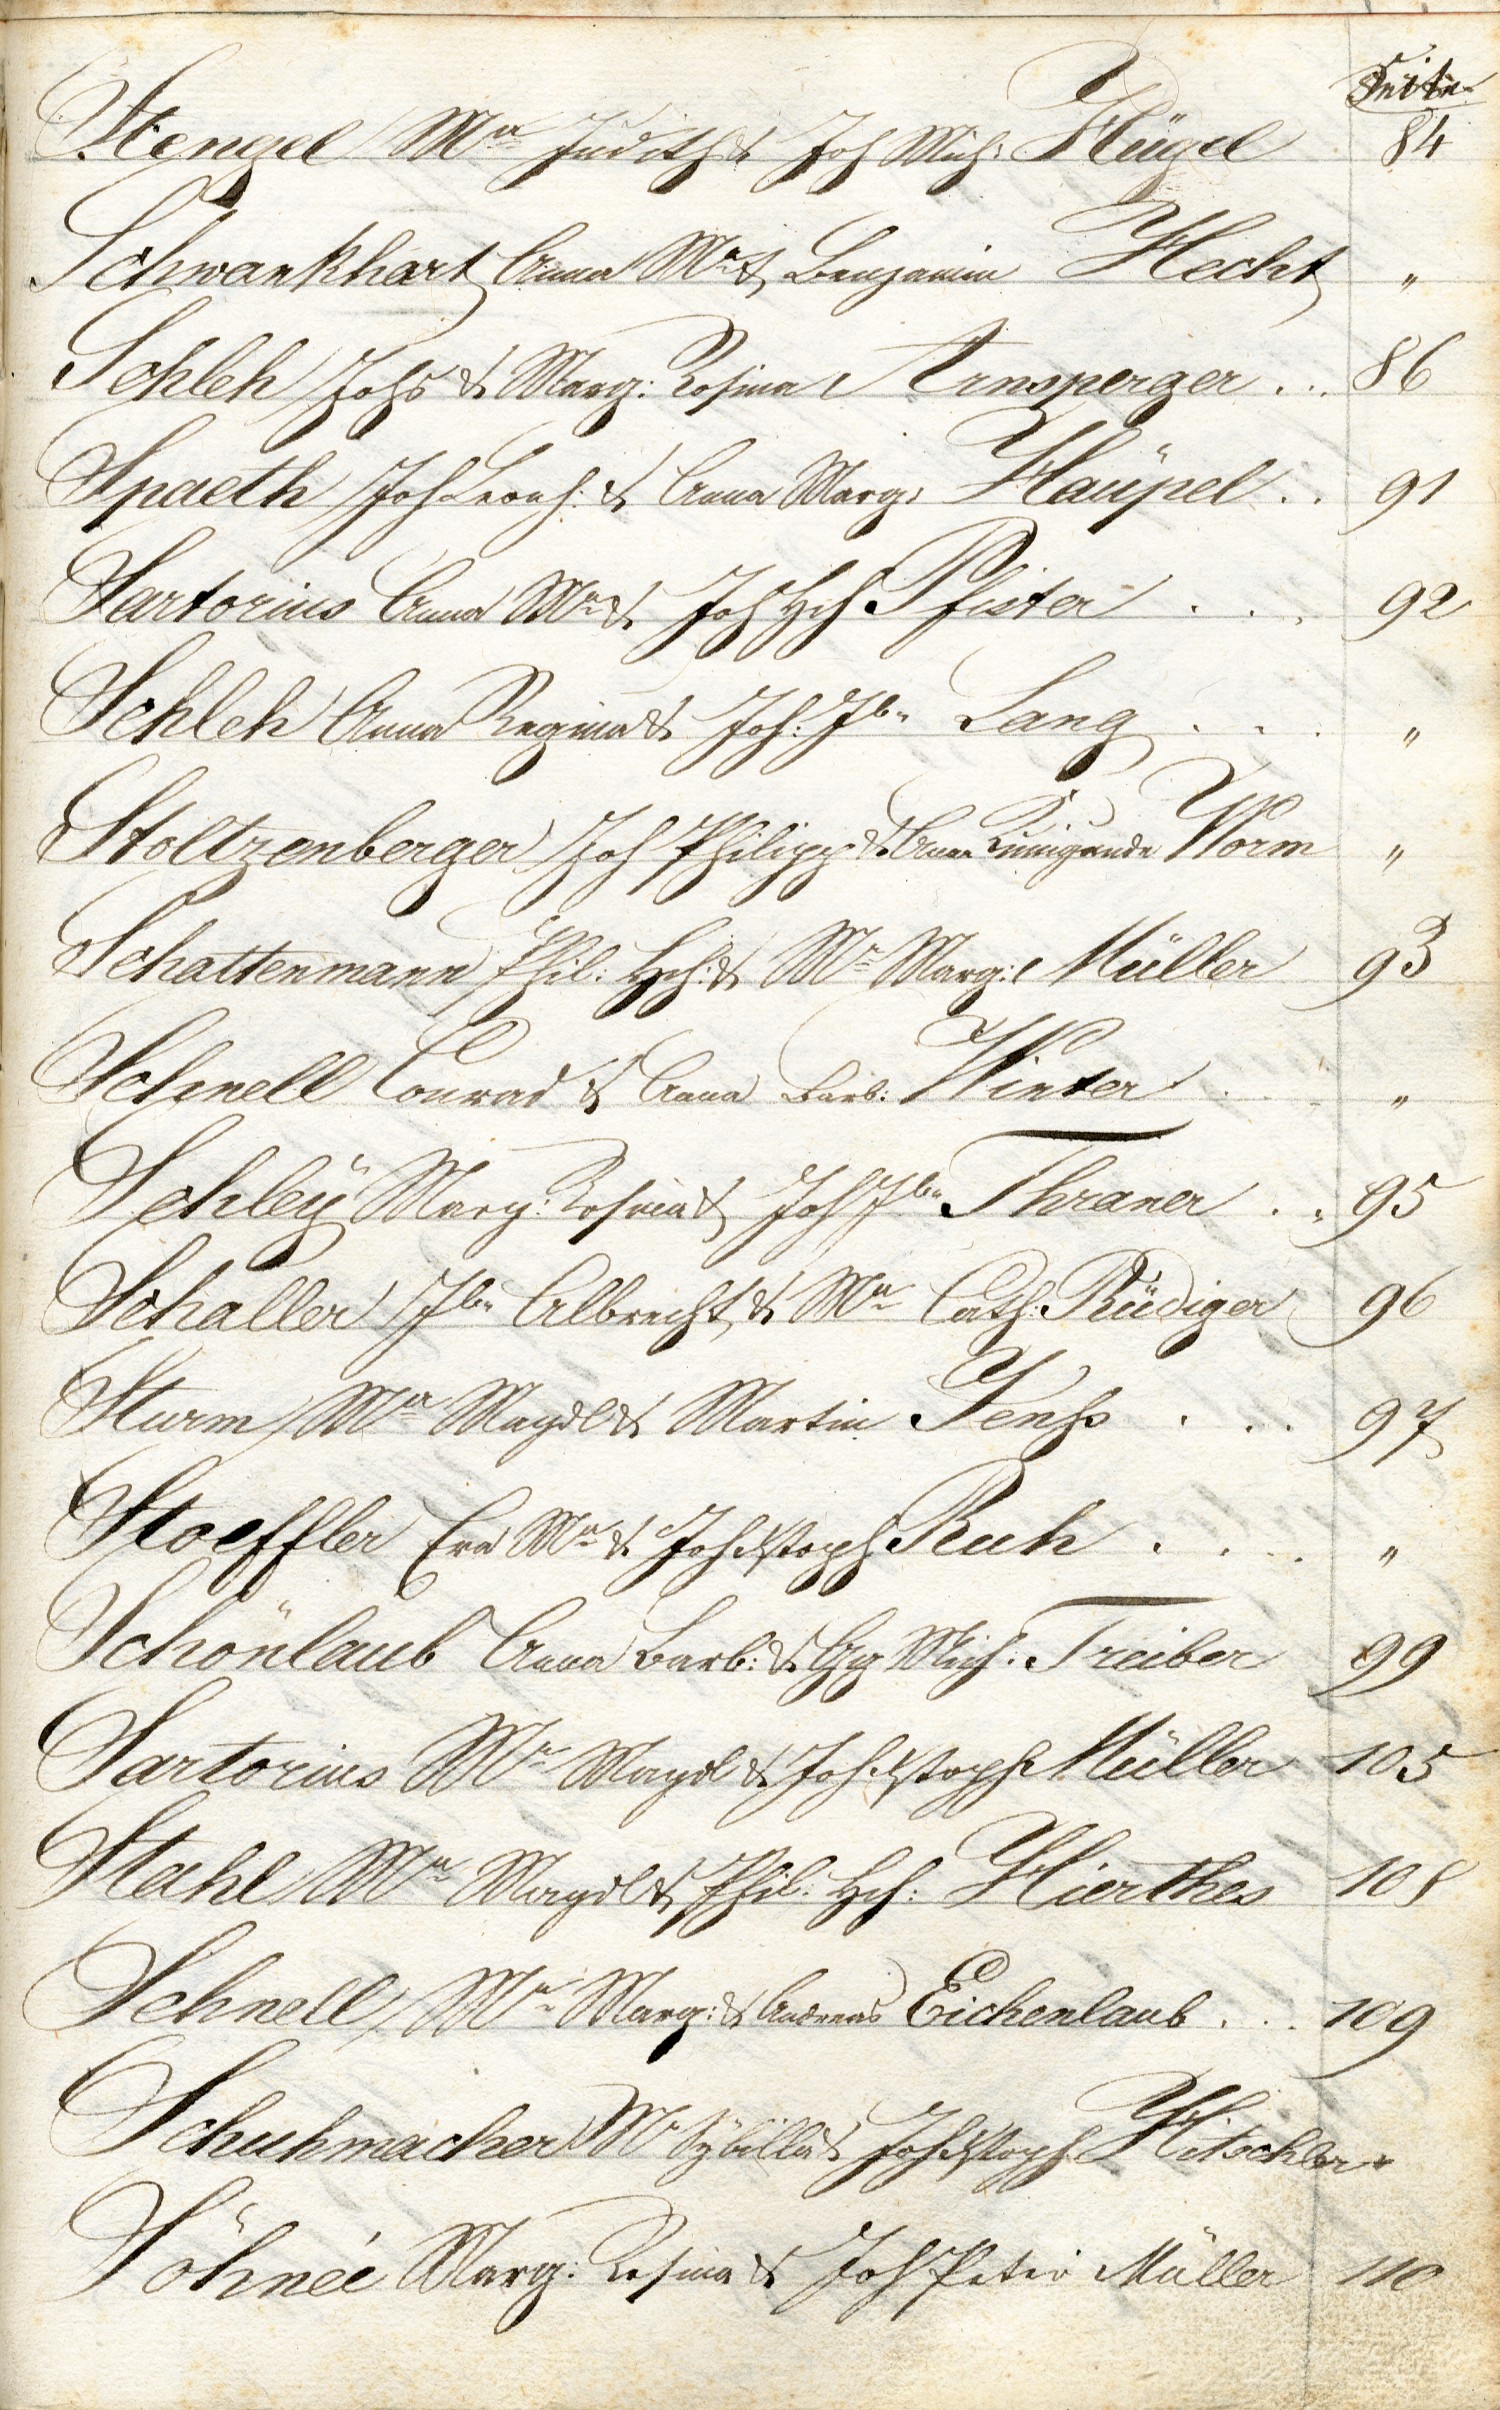 Seite
Stengel Ma Judith & Joh Mich: Hügel 84
Schwankhart Anna Ma & Benjamin Hecht "
Schleh Johs & Marg: Rosina Arnsperger . . 86
Spaeth Joh Leonh: & Anna Marg: Haüpel . . 91
Sartorius Anna Ma & Joh Hch Pfister . . . 92
Schleh Anna Regina & Joh: Jbn Lang . . . "
Stoltzenberger Joh Philipp & Anna Kunigunde Worm "
Schattenmann Phil: Hch: & Ma Marg: Müller 93
Schnell Conrad & Anna Barb: Winter . . . "
Schleÿ Marg: Rosina & Joh Jbn Thraner . . 95
Schaller Jbn Albrecht & Ma Cath: Rüdiger 96
Sturm Ma Magdl & Martin . . . 97
Stoeffler Eva Ma & Joh Xstoph Ruh . . . . "
Schönlaub Anna Barb: & Gg Mich: Treiber 99
Sartorius Ma Magdl & Joh Xstoph Müller 105
Stahl Ma Magdl & Phil: Hch: Hierthes 108
Schnell Ma Marg: & Andreas Eichenlaub . . . 109
Schuhmacher Ma Sÿbilla & Joh Xstoph Hitschler "
Söhneé Marg: Rosina & Joh Peter Müller 110